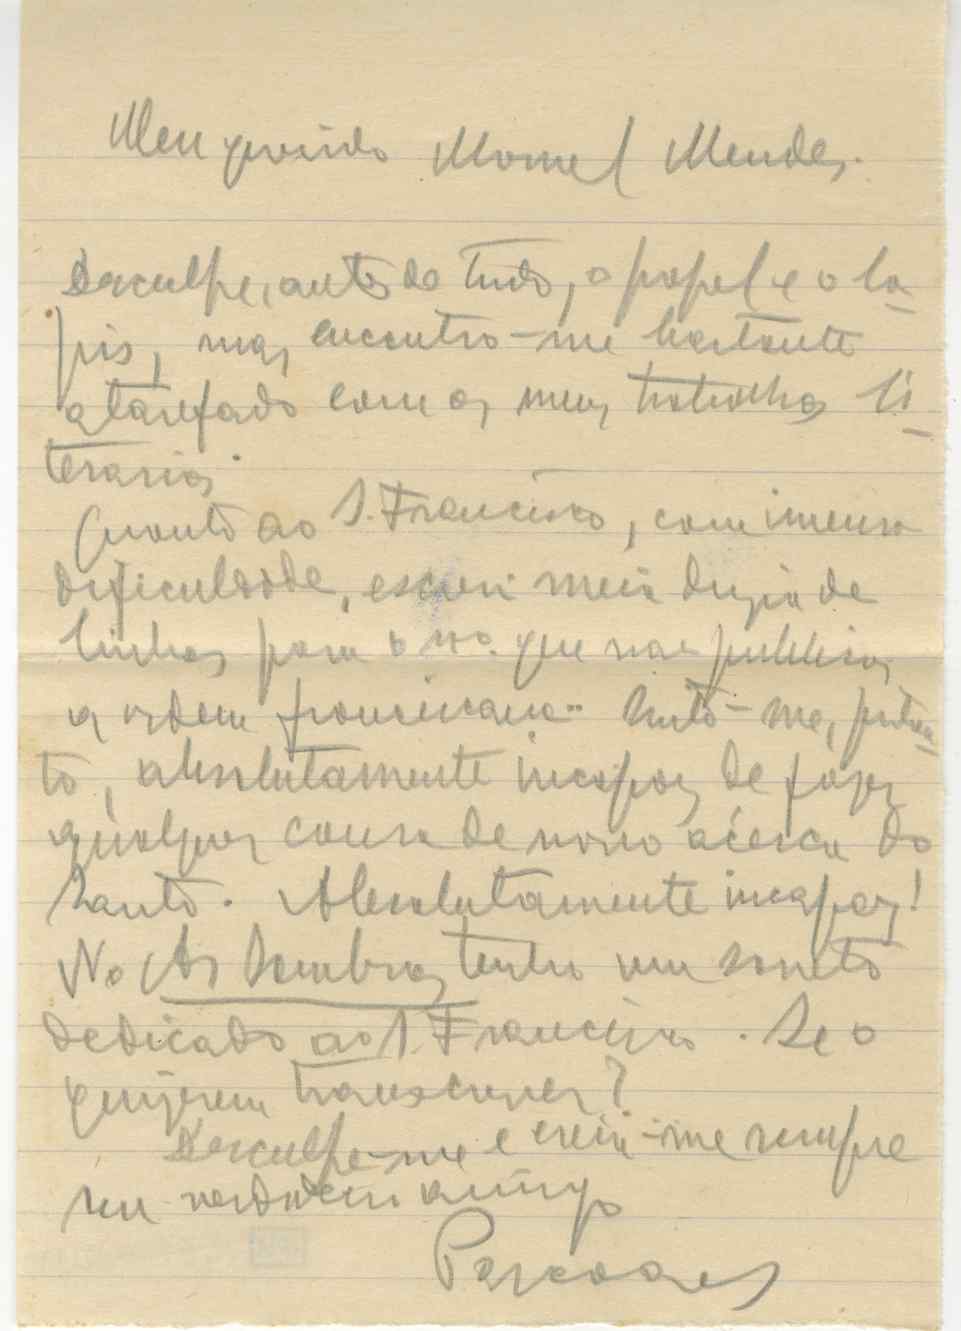 Meu querido Manuel Mendes.
Desculpe, antes de tudo, o papel e o la-
pis, mas encontro-me bastante
atarefado com os meus trabalhos li-
terarios.
Quanto ao S. Francisco, com imensa
dificuldade, escrevi meia duzia de
linhas para o nº. que vae publicar
a ordem franciscana. Sinto-me, portan-
to, absolutamente incapaz de fazer
qualquer cousa de novo acêrca do
Santo. Absolutamente incapaz!
No As Sombras tenho um soneto
dedicado ao S. Francisco. Se o
quizerem transcrever?
Desculpe-me e creia-me sempre
seu verdadeiro amigo
Pascoaes